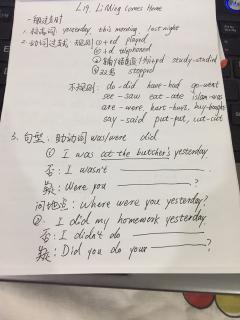 L19 Li Ming Comes Home
一般过去时
1. 标志词: yesterday, this morning, last night
2. 动词过去式: 规则 ① + ed played
② + d telephoned
studied
④ 双写 stopped
不规则: do - did have - had go - went
see - saw eat - ate
are - were, hurt - hurt, buy - bought
say - said put - put, cut - cut
3. 句型: 助动词 was/were did
① I was at the butcher's yesterday
否: I wasn't
疑: Were you ?
问地点: Where were you yesterday?
②. I did my homework yesterday.
否: I didn't do
疑: Did you do your ?